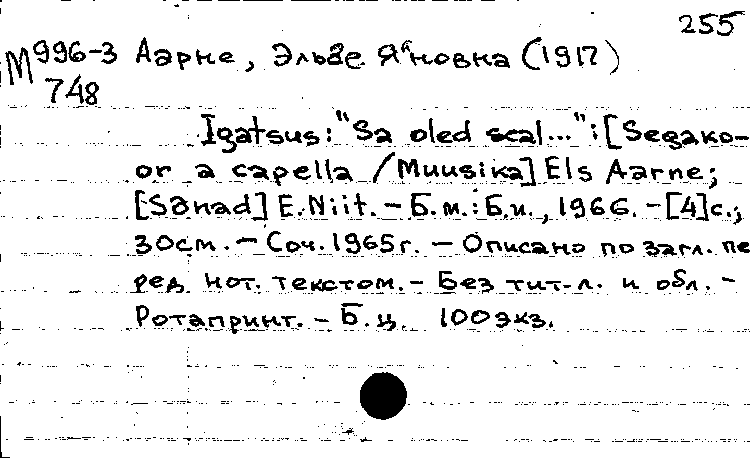 255
М 996-3 Аарне, Эльзе Яновна (1917)
748
Igatsus: "Sa oled seal...": [Segako-
or a capella / Muusika] Els Aarne;
[Sõnad] E. Niit. - Б.м.: Б.и., 1966. - [4]с.;
30см. - Соч. 1965г. - Описано по загл. пе
ред нот. текстом. - Без тит. л. и обл. -
Ротапринт. - Б.ц. 100экз.